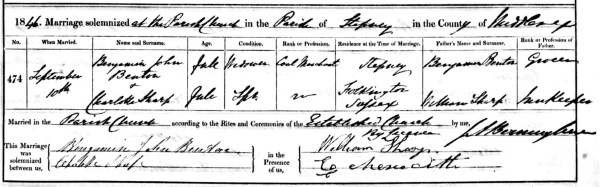 1846. Marriage solemnized at the Parish Church in the Parish of Stepney in the County of Middlesex
No. When Married. Name and Surname. Age. Condition. Rank or Profession. Residence at the Time of Marriage. Father's Name and Surname. Rank or Profession of Father.
474 September 10th Benjamin John Benton Full Widower Coal Merchant Stepney Benjamin Benton Grocer
Charlotte Sharp Full Sps. Folkington Sussex William Sharp Innkeeper
Married in the Parish Church according to the Rites and Ceremonies of the Established Church by me,
This Marriage was solemnized between us, Benjamin John Benton Charlotte Sharp in the Presence of us, William Sharp